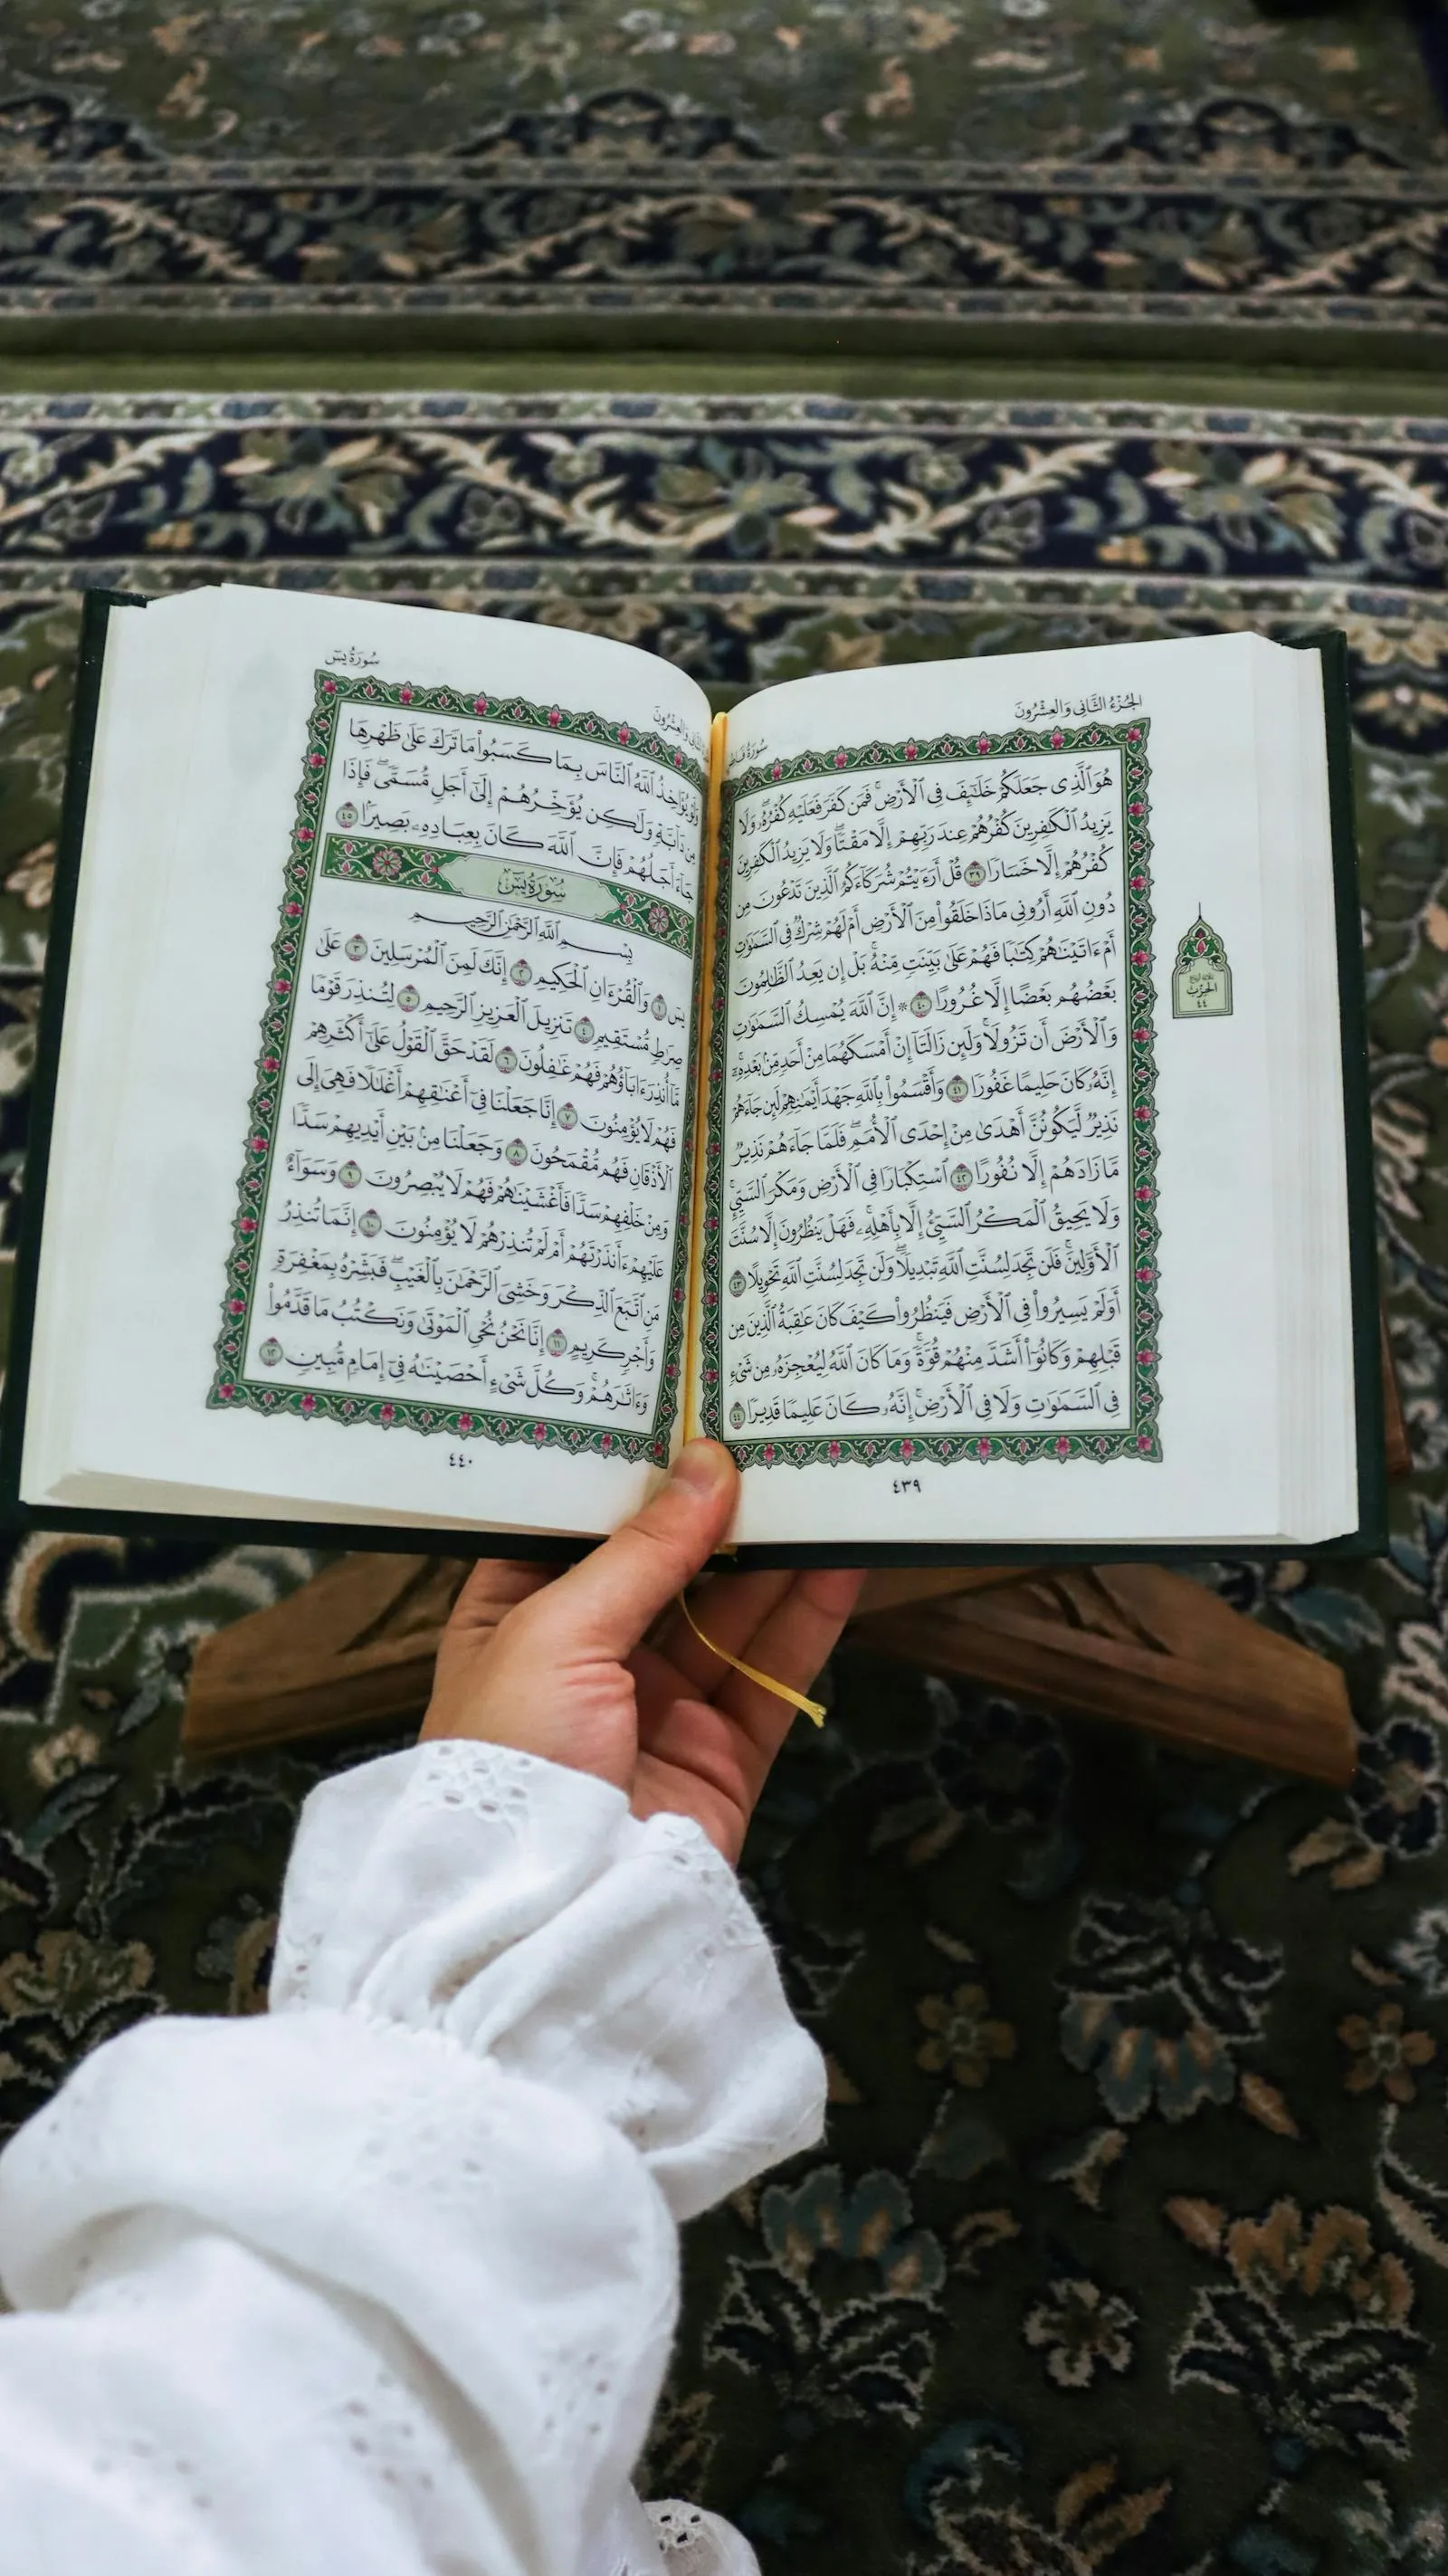 الجُزْءُ الثَّانِي وَالعِشْرُونَ
هُوَ ٱلَّذِى جَعَلَكُمْ خَلَٰٓئِفَ فِى ٱلْأَرْضِ ۚ فَمَن كَفَرَ فَعَلَيْهِ كُفْرُهُۥ ۖ وَلَا
يَزِيدُ ٱلْكَٰفِرِينَ كُفْرُهُمْ عِندَ رَبِّهِمْ إِلَّا مَقْتًا ۖ وَلَا يَزِيدُ ٱلْكَٰفِرِينَ
كُفْرُهُمْ إِلَّا خَسَارًا ٣٩ قُلْ أَرَءَيْتُمْ شُرَكَآءَكُمُ ٱلَّذِينَ تَدْعُونَ مِن
دُونِ ٱللَّهِ أَرُونِى مَاذَا خَلَقُوا۟ مِنَ ٱلْأَرْضِ أَمْ لَهُمْ شِرْكٌ فِى ٱلسَّمَٰوَٰتِ
أَمْ ءَاتَيْنَٰهُمْ كِتَٰبًا فَهُمْ عَلَىٰ بَيِّنَتٍ مِّنْهُ ۚ بَلْ إِن يَعِدُ ٱلظَّٰلِمُونَ
بَعْضُهُم بَعْضًا إِلَّا غُرُورًا ٤٠ ۞ إِنَّ ٱللَّهَ يُمْسِكُ ٱلسَّمَٰوَٰتِ
وَٱلْأَرْضَ أَن تَزُولَا ۚ وَلَئِن زَالَتَآ إِنْ أَمْسَكَهُمَا مِنْ أَحَدٍ مِّنۢ بَعْدِهِۦٓ ۚ
إِنَّهُۥ كَانَ حَلِيمًا غَفُورًا ٤١ وَأَقْسَمُوا۟ بِٱللَّهِ جَهْدَ أَيْمَٰنِهِمْ لَئِن جَآءَهُمْ
نَذِيرٌ لَّيَكُونُنَّ أَهْدَىٰ مِنْ إِحْدَى ٱلْأُمَمِ ۖ فَلَمَّا جَآءَهُمْ نَذِيرٌ
مَّا زَادَهُمْ إِلَّا نُفُورًا ٤٢ ٱسْتِكْبَارًا فِى ٱلْأَرْضِ وَمَكْرَ ٱلسَّيِّئِ ۚ
وَلَا يَحِيقُ ٱلْمَكْرُ ٱلسَّيِّئُ إِلَّا بِأَهْلِهِۦ ۚ فَهَلْ يَنظُرُونَ إِلَّا سُنَّتَ
ٱلْأَوَّلِينَ ۚ فَلَن تَجِدَ لِسُنَّتِ ٱللَّهِ تَبْدِيلًا ۖ وَلَن تَجِدَ لِسُنَّتِ ٱللَّهِ تَحْوِيلًا ٤٣
أَوَلَمْ يَسِيرُوا۟ فِى ٱلْأَرْضِ فَيَنظُرُوا۟ كَيْفَ كَانَ عَٰقِبَةُ ٱلَّذِينَ مِن
قَبْلِهِمْ وَكَانُوٓا۟ أَشَدَّ مِنْهُمْ قُوَّةً ۚ وَمَا كَانَ ٱللَّهُ لِيُعْجِزَهُۥ مِن شَىْءٍ
فِى ٱلسَّمَٰوَٰتِ وَلَا فِى ٱلْأَرْضِ ۚ إِنَّهُۥ كَانَ عَلِيمًا قَدِيرًا ٤٤
٤٣٩
الحِزْب
٤٤
سُورَةُ يسٓ
وَالعِشْرُونَ
وَلَوْ يُؤَاخِذُ ٱللَّهُ ٱلنَّاسَ بِمَا كَسَبُوا۟ مَا تَرَكَ عَلَىٰ ظَهْرِهَا
مِن دَآبَّةٍ وَلَٰكِن يُؤَخِّرُهُمْ إِلَىٰٓ أَجَلٍ مُّسَمًّى ۖ فَإِذَا
جَآءَ أَجَلُهُمْ فَإِنَّ ٱللَّهَ كَانَ بِعِبَادِهِۦ بَصِيرًۢا ٤٥
سُورَةُ يسٓ
بِسْمِ ٱللَّهِ ٱلرَّحْمَٰنِ ٱلرَّحِيمِ
يسٓ ١ وَٱلْقُرْءَانِ ٱلْحَكِيمِ ٢ إِنَّكَ لَمِنَ ٱلْمُرْسَلِينَ ٣ عَلَىٰ
صِرَٰطٍ مُّسْتَقِيمٍ ٤ تَنزِيلَ ٱلْعَزِيزِ ٱلرَّحِيمِ ٥ لِتُنذِرَ قَوْمًا
مَّآ أُنذِرَ ءَابَآؤُهُمْ فَهُمْ غَٰفِلُونَ ٦ لَقَدْ حَقَّ ٱلْقَوْلُ عَلَىٰٓ أَكْثَرِهِمْ
فَهُمْ لَا يُؤْمِنُونَ ٧ إِنَّا جَعَلْنَا فِىٓ أَعْنَٰقِهِمْ أَغْلَٰلًا فَهِىَ إِلَى
ٱلْأَذْقَانِ فَهُم مُّقْمَحُونَ ٨ وَجَعَلْنَا مِنۢ بَيْنِ أَيْدِيهِمْ سَدًّا
وَمِنْ خَلْفِهِمْ سَدًّا فَأَغْشَيْنَٰهُمْ فَهُمْ لَا يُبْصِرُونَ ٩ وَسَوَآءٌ
عَلَيْهِمْ ءَأَنذَرْتَهُمْ أَمْ لَمْ تُنذِرْهُمْ لَا يُؤْمِنُونَ ١٠ إِنَّمَا تُنذِرُ
مَنِ ٱتَّبَعَ ٱلذِّكْرَ وَخَشِىَ ٱلرَّحْمَٰنَ بِٱلْغَيْبِ ۖ فَبَشِّرْهُ بِمَغْفِرَةٍ
وَأَجْرٍ كَرِيمٍ ١١ إِنَّا نَحْنُ نُحْىِ ٱلْمَوْتَىٰ وَنَكْتُبُ مَا قَدَّمُوا۟
وَءَاثَٰرَهُمْ ۚ وَكُلَّ شَىْءٍ أَحْصَيْنَٰهُ فِىٓ إِمَامٍ مُّبِينٍ ١٢
٤٤٠